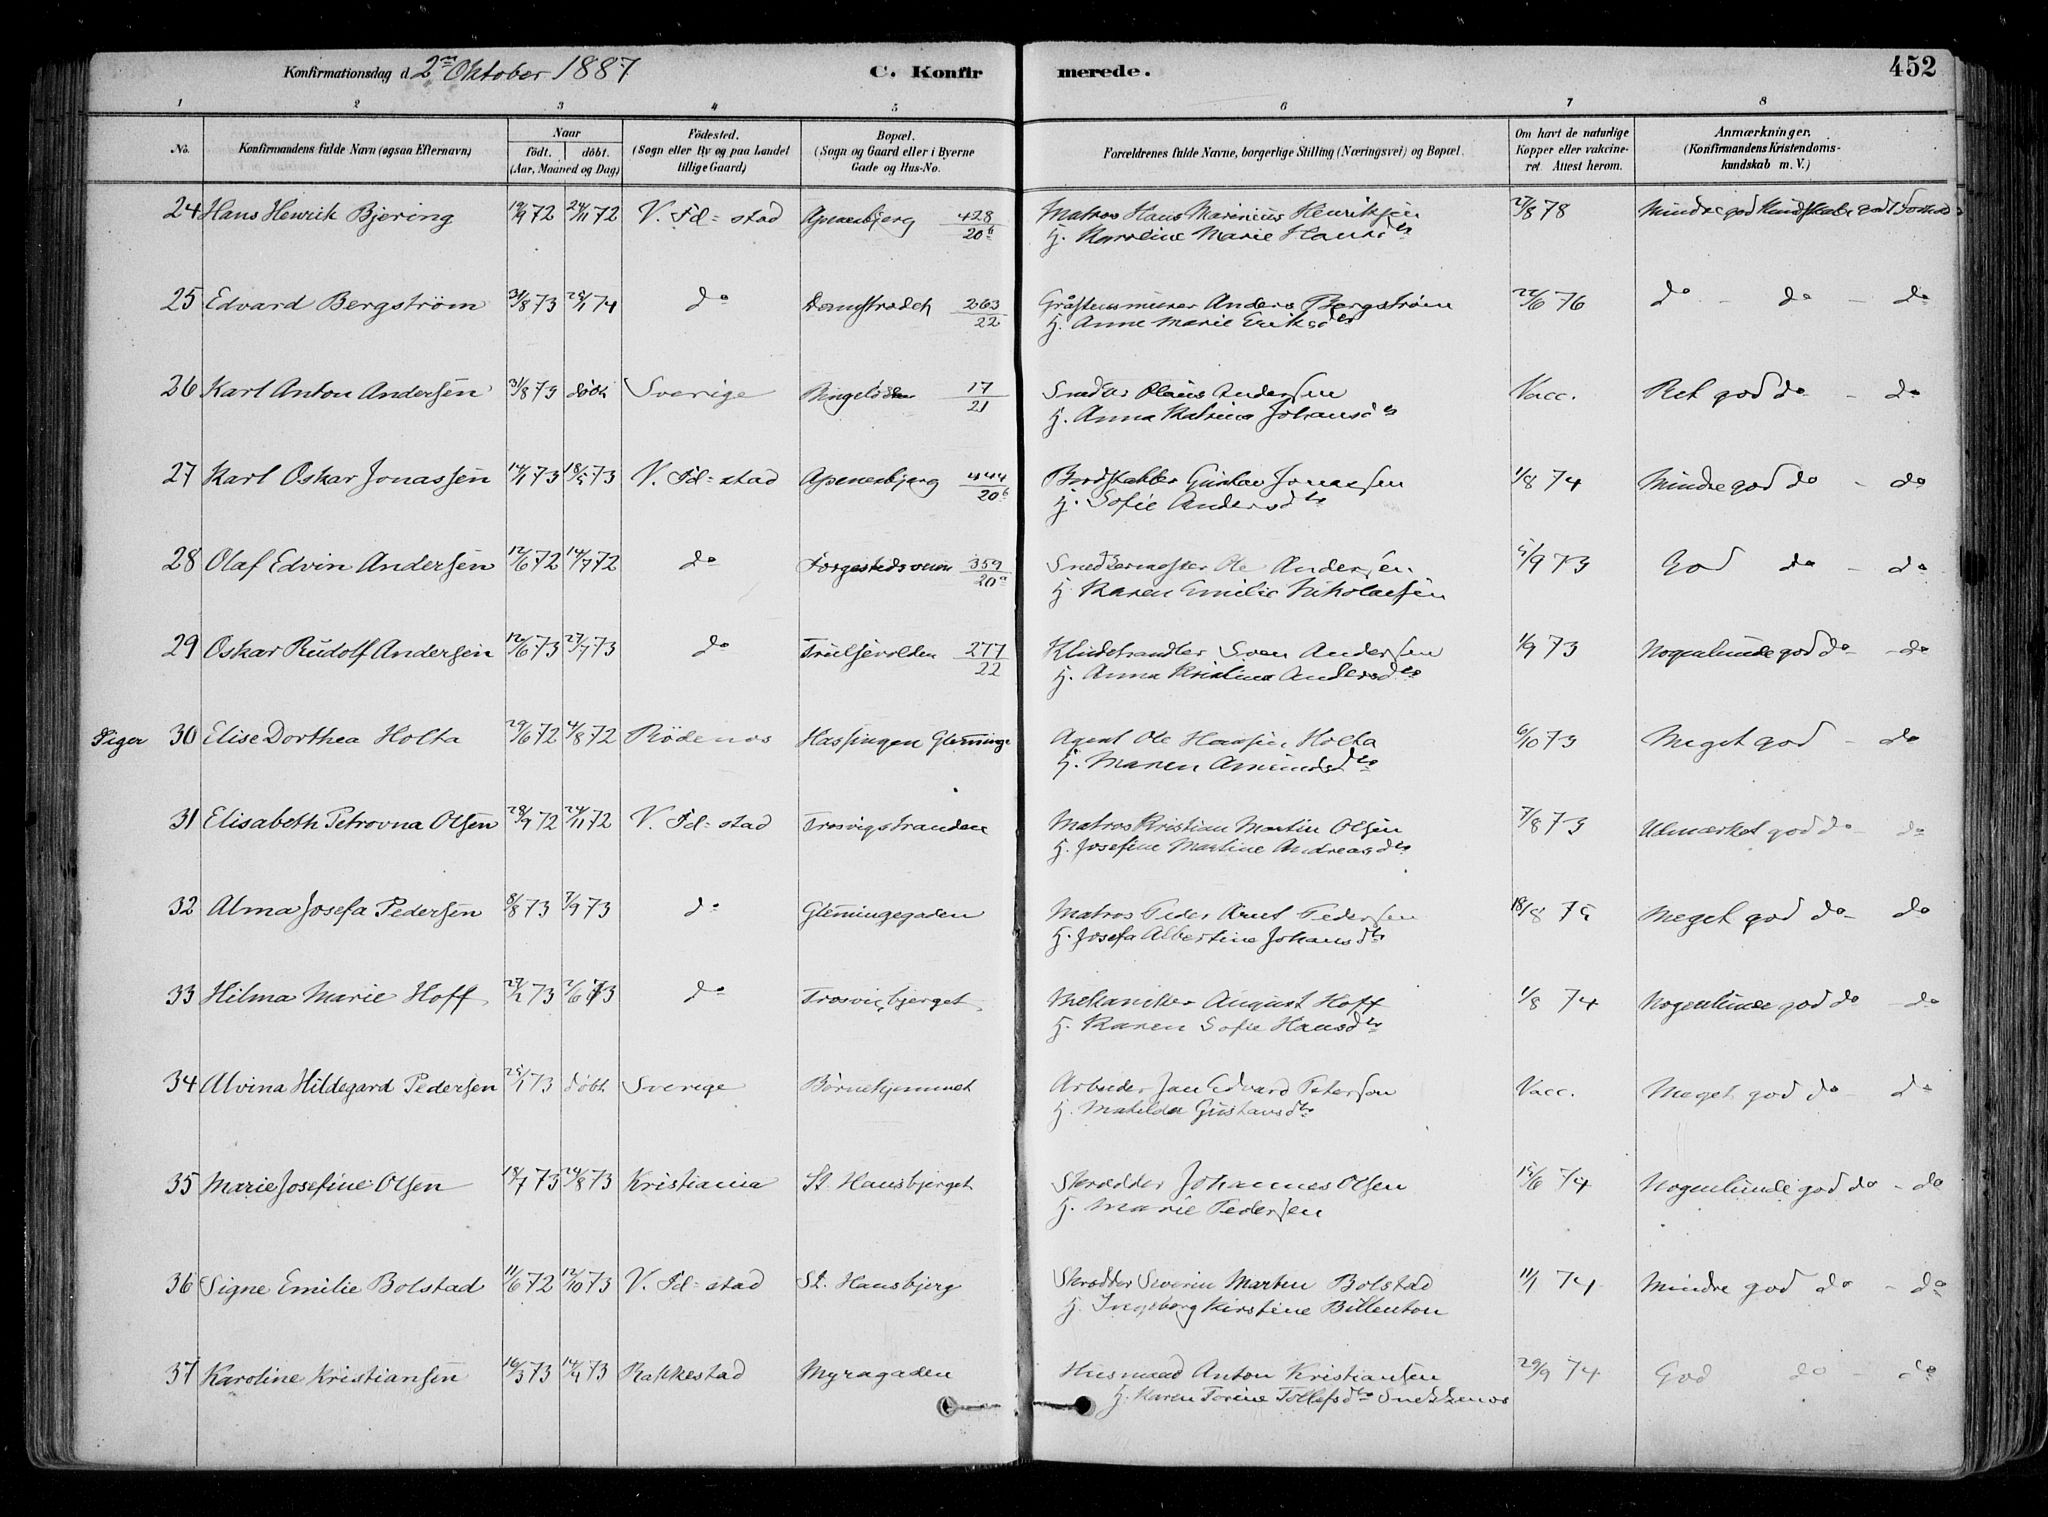 Konfirmationsdag d. 2den Oktober 1887 C. Konfirmerede. 452
1 2 3 4 5 6 7 8
No. Konfirmandens fulde Navn (ogsaa Efternavn) Naar født. døbt. (Aar, Maaned og Dag) Fødested. (Sogn eller By og paa Landet tillige Gaard) Bopæl. (Sogn og Gaard eller i Byerne Gade og Hus-No. Forældrenes fulde Navne, borgerlige Stilling (Næringsvei) og Bopæl. Om havt de naturlige Kopper eller vakcineret. Attest herom. Anmærkninger. (Konfirmandens Kristendomskundskab m. V.)
24 Hans Henrik Bjering 19/9 72 24/11 72 V. Fd=stad Apenesbjerg 428/20b Matros Hans Marinius Henriksen 27/8 78 Mindre god Kundskab godt Forhold
H. Karoline Marie Hansdtr
25 Edvard Bergstrøm 31/8 73 25/1 74 do Damstrædet 263/22 Gråstensmurer Anders Bergstrøm 22/6 76 do - do - do
H. Anne Marie Eriksdtr
26 Karl Anton Andersen 31/8 73 døbt Sverige Ringeløkken 17/21 Snedker Olaus Andersen Vacc. Ret god do - do
H. Anna Katrina Johansdtr
27 Karl Oskar Jonassen 14/1 73 18/5 73 V. Fd=stad Apenesbjerg 444/20b Bordstabler Gustav Jonassen 1/8 74 Mindre god do - do
H. Sofie Andersdtr
28 Olaf Edvin Andersen 12/6 72 14/7 72 do Forgestedsveien 359/20a Snedkermester Ole Andersen 5/9 73 God do - do
H. Karen Emilie Nikolaisen
29 Oskar Rudolf Andersen 12/6 73 27/7 73 do Trulsevolden 277/22 Kludehandler Sven Andersen 1/9 73 Nogenlunde god do - do
H. Anna Kristina Andersdtr
Piger 30 Elise Dorthea Holta 29/6 72 4/8 72 Rödenes Hassingen Glemminge Agent Ole Hansen Holta 6/10 73 Meget god - do
H. Maren Amundsdtr
31 Elisabeth Petrovna Olsen 28/9 72 24/11 72 V. Fd=stad Trosvigstranden Matros Kristian Martin Olsen 7/8 73 Udmærket god do - do
H. Josefine Martine Andreasdtr
32 Alma Josefa Pedersen 8/8 73 7/9 73 do Glemmingegaden Matros Peder Arnt Pedersen 18/8 75 Meget god do - do
H. Josefa Albertine Johansdtr
33 Hilma Marie Hoff 27/2 73 2/6 73 do Trosvigbjerget Mekaniker August Hoff 1/8 74 Nogenlunde god do - do
H. Karen Sofie Hansdtr
34 Alvina Hildegard Pedersen 25/1 73 døbt Sverige Børnehjemmet Arbeider Jan Edvard Peterson Vacc. Meget god do - do
H. Matilda Gustavsdtr
35 Marie Josefine Olsen 18/7 73 24/8 73 Kristiania St. Hansbjerget Skrædder Johannes Olsen 15/6 74 Nogenlunde god do - do
H. Marie Pedersen
36 Signe Emilie Bolstad 11/6 72 12/10 73 V. Fd=stad St. Hansbjerg Skrædder Severin Martin Bolstad 11/1 74 Mindre god do - do
H. Ingeborg Kirstine Billenton
37 Karoline Kristiansen 16/3 73 14/4 73 Rakkestad Myragaden Husmand Anton Kristiansen 29/9 74 God do - do
H. Karen Torine Tollefsdtr Snekkenes